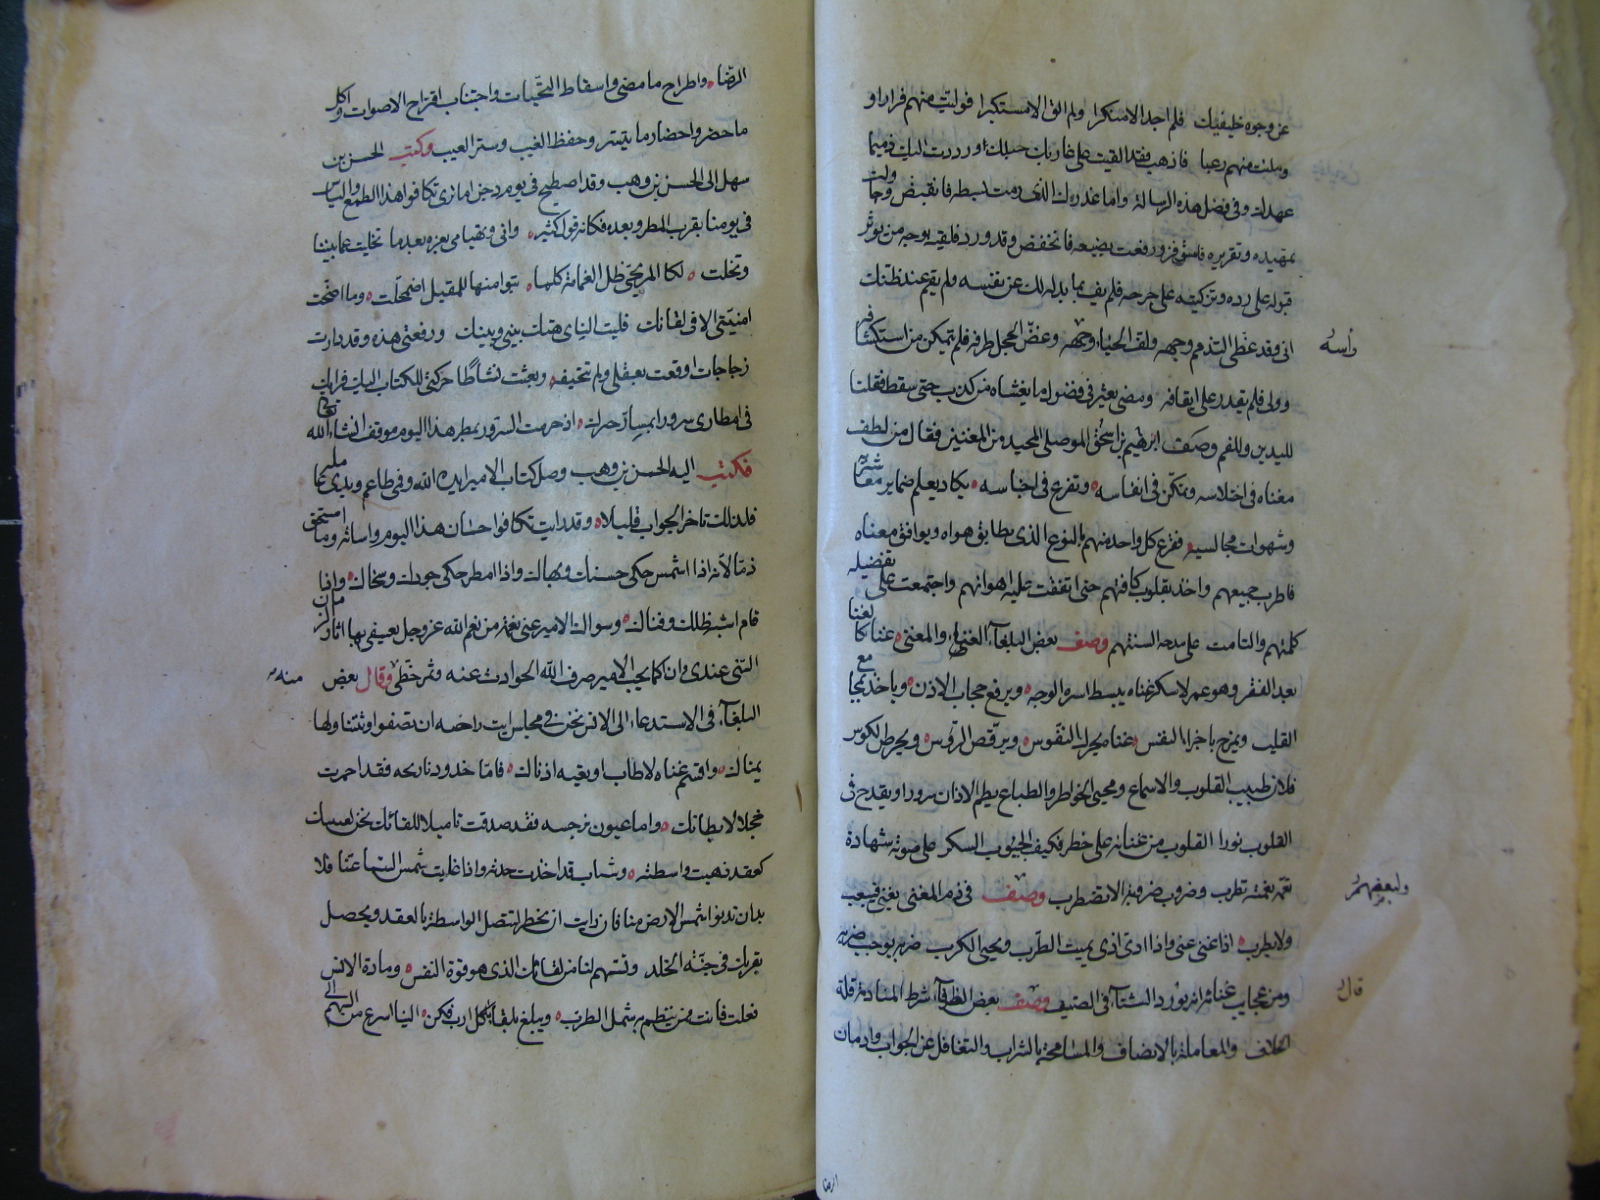 عن وجوه خليفيات فلم اجد الا مستكرا ولم الق الا مستكبرا فوليت منهم فرارا و
وملئت منهم رعبا فاذهب فقد القيت على غاربك حبلك ورددت اليك ذميما
عهدك وفى فصل هذه الرسالة واما عذرك الذى رمت بسطه فانقبض وحاولت
تمهيده وتقريره فاستوفز ورفعت بضبعه فانخفض وقد ورد فلقيته بوجه من يوثر
قبوله على رده وتزكيته على جرحه فلم يف بما بذله لك عن نفسه ولم يقم عند ظنك
انى وقد غطى التذمم وجهه ولف الحياء وجهه وغض الخجل طرفه فلم تتمكن من استكشافه
راسه
وولى فلم تقدر على ايقافه ومضى يعثر فى فضول ما يغشاه من كرب حتى سقط فقلنا
لليدين وللفم وصف ابرهيم بن اسحق الموصلى المجيد من المغنين فقال من لطف
فى اختلاسه وتمكن فى انفاسه وتفرع فى اجناسه يكاد يعلم ضماير معاشريه
وشهوات مجالسيه فقرع كل واحد منهم بالنوع الذى يطابق هواه ويوافق معناه
فاطرب جميعهم واخذ بقلوب كافتهم حتى اتفقت عليه اهوائهم واجتمعت على تفضيله
كلمتهم والتامت على مدحه السنتهم وصف بعض البلغآء الغناء والمغنى غناء كالغنا
بعد الفقر وهو عمر لاسكر غناه يبسط اسرة الوجه ويرفع حجاب الاذن وياخذ بمجامع
القلب ويمزج باجزاء النفس غناء يحرك النفوس ويرقص الرؤس ويحرض الكوس
فلان طبيب القلوب والاسماع ومحيى الخواطر والطباع يطعم الاذان سرورا ويقدح فى
القلوب نورا القلوب من غنائه على خطر فكيف الجيوب السكر على صوته شهادة
نغمه نغمته تطرب وضروب ضربه لا تضطرب وصف فى ذم المغنى يغنى فيعيب
ولبعضهم
ولا يطرب اذا غنى عنى واذا ادى اذى يميت الطرب ويحيى الكرب ضربه يوجب ضربه
ومن عجايب غنائه انه يورد الشتآء فى الصيف وصف بعض الظرفآء شرط المنادمة قلة
قال
الخلاف والمعاملة بالانصاف والمسامحة بالشراب والتغافل عن الجواب وادمان
الرضا
الرضا واطراح ما مضى واسقاط التحيات واجتناب اقتراح الاصوات واكل
ما حضر واحضار ما يتيسر وحفظ الغيب وستر العيب وكتب الحسن بن
سهل الى الحسن بن وهب وقد اصطبح فى يوم دجن اما ترى تكافؤ هذا الطمع والياس
فى يومنا بقرب المطر وبعده فكانه قول كثير وانى وتهيامى بعزة بعد ما تخليت عما بيننا
وتخلت لكا المرتجى ظل الغمامة كلما تبوا منها للمقيل اضمحلت وما اصبحت
امنيتى الا فى لقائك فليت الناى هتك بينى وبينك ورقعتى هذه وقد دارت
زجاجات اوقعت بعقلى ولم تتحيفه وبعثت نشاطا حركنى للكتاب اليك فرايك
فى امطارى سرورا بسار خبرك اذ حرمت السرور بمطر هذا اليوم موقف انشاء الله تعالى
فكتب اليه الحسن بن وهب وصل كتاب الامير ايده الله وفمى طاعم ويدى عاملة
فلذلك تاخر الجواب قليلا وقد رايت تكافؤ احسان هذا اليوم واسائه وما استحق
ذما لانه اذا اشمس حكى حسنك وبهاك واذا امطر حكى جودك وسخاك واذا
غام اشبه ظلك وفناك وسوال الامير عنى نعمة من نعم الله عز وجل يعفى بها اثار الزمان
السيئ عندى وانا كما يحب الامير صرف الله الحوادث عنه وعن حظى وقال بعض
منه
البلغآء فى الاستدعاء الى الانس نحن فى مجلس ابت راحه ان تصفوا وتتناولها
يمناك واقسم غناه لا طاب او يعيه اذناك فاما خدود نارنجه فقد احمرت
خجلا لابطائك واما عيون نرجسه فقد حدقت تاميلا للقائك نحن لغيبتك
كعقد ذهبت واسطته وشباب قد اخذت جدته واذا غابت شمس السماء عنا فلا
بد ان تدنوا شمس الارض منا فان رايت ان تحضر لتتصل الواسطة بالعقد ونحصل
بقربك فى جنة الخلد وتسهم لنا من لقائك الذى هو قوة النفس ومادة الانس
فعلت فانت من ينتظم به شمل الطرب ويبلغ بلقائه كل ارب فكن الينا اسرع من السهم الى